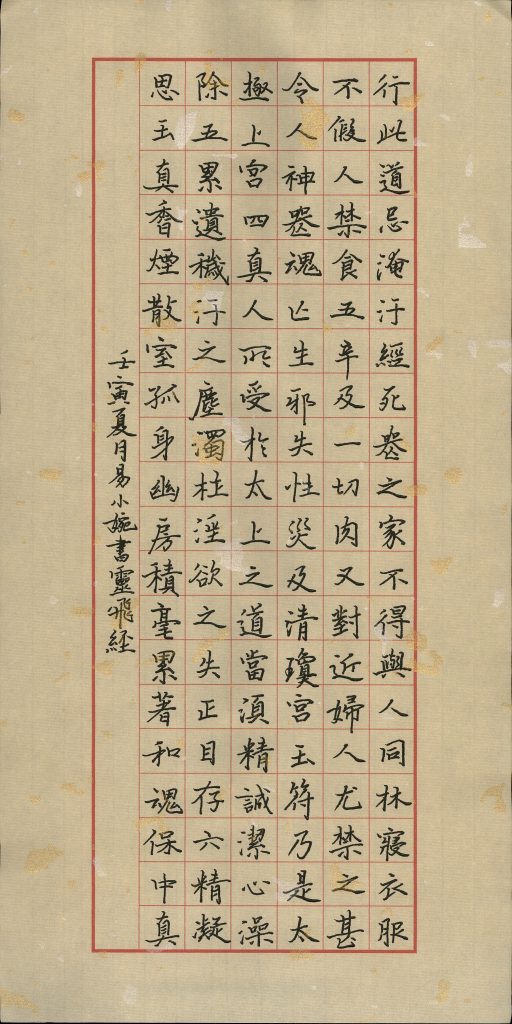 行此道忌淹汙經死丧之家不得與人同牀寢衣服
不假人禁食五辛及一切肉又對近婦人尤禁之甚
令人神丧魂亡生邪失性災及清瓊宮玉符乃是太
極上宮四真人所受於太上之道當須精誠潔心澡
除五累遺穢汙之塵濁杜淫欲之失正目存六精凝
思玉真香煙散室孤身幽房積毫累著和魂保中真
壬寅夏月易小婉書靈飛経